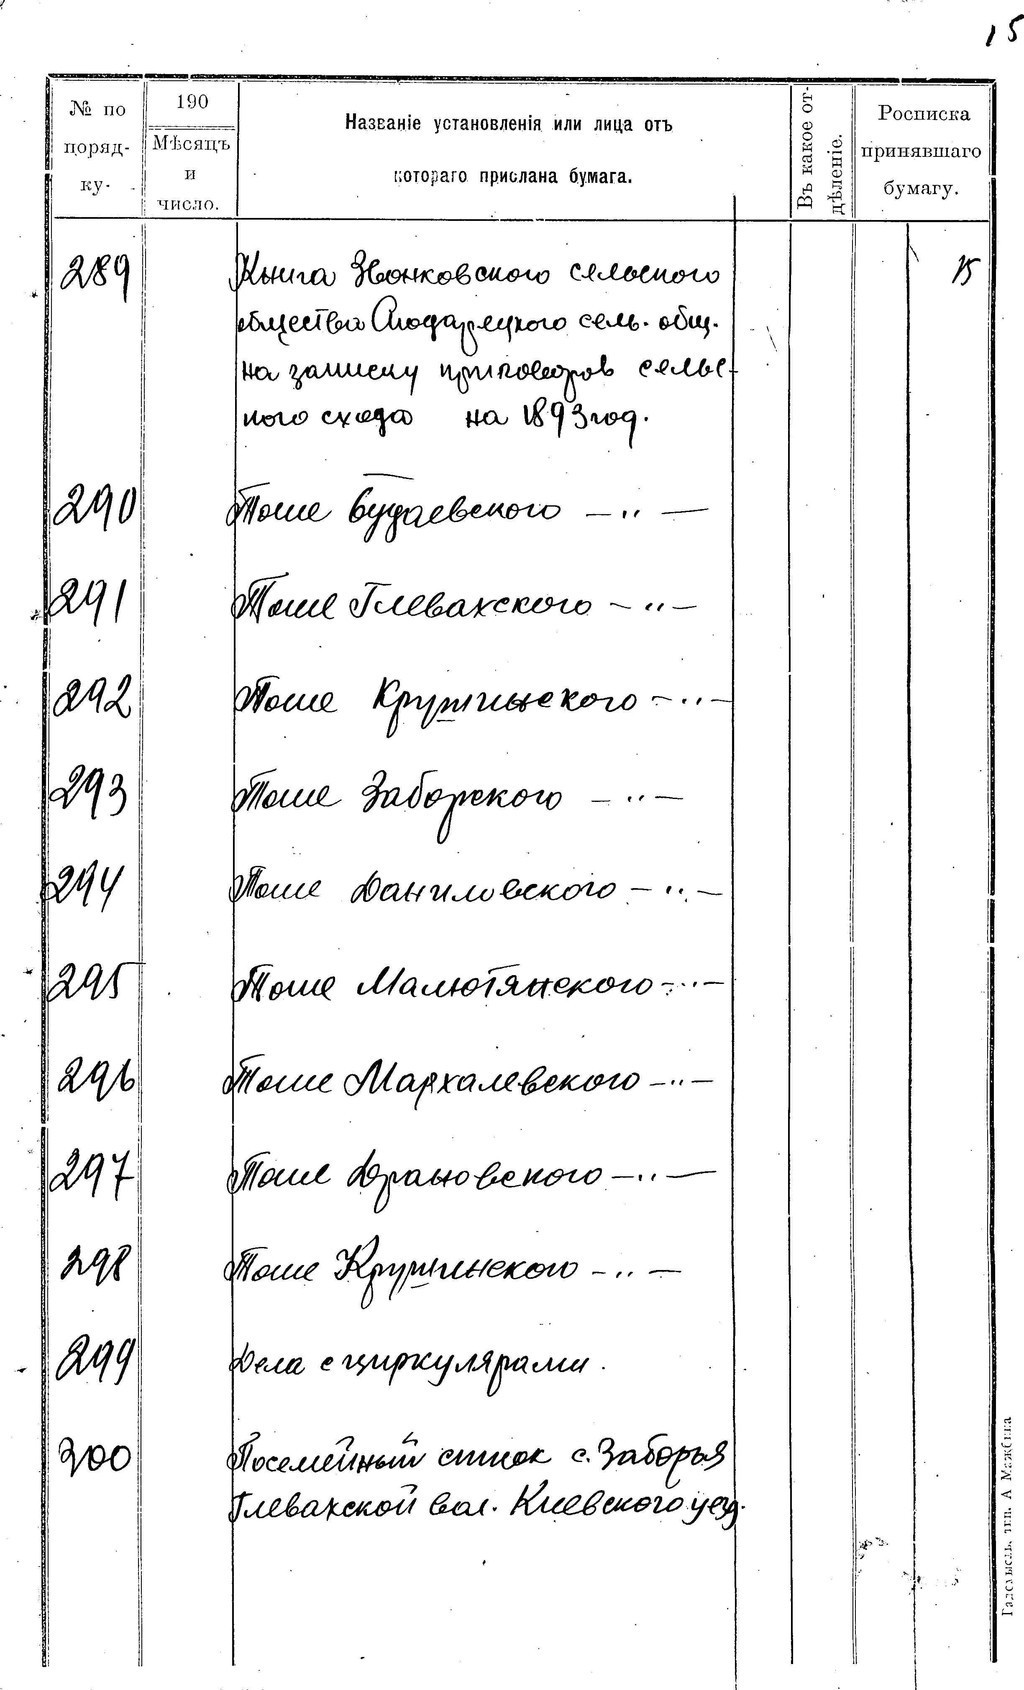 15
№ по поряд-ку.
190
Мѣсяцъ и число.
Названіе установленія или лица отъ
котораго прислана бумага.
Въ какое от-дѣленіе.
Росписка принявшаго бумагу.
289 Книга Звонковского сельского 15
общества сель. общ.
на записку приговоров сельс-
кого схода на 1893 год.
290 Тоже Будаевского — " —
291 Тоже Глевахского — " —
292 Тоже Кружчинского — " —
293 Тоже Заборского — " —
294 Тоже Даниловского — " —
295 Тоже Малютянского — " —
296 Тоже Мархалевского — " —
297 Тоже — " —
298 Тоже — " —
299 Дела с циркулярами.
300 Посемейный список с. Заборья
Глевахской вол. Киевского уезд.
тип. А